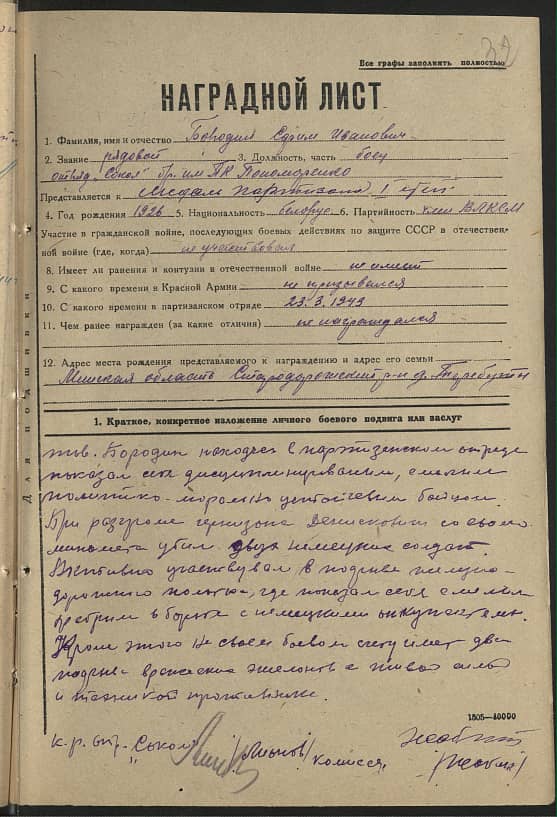 32
Все графы заполнять полностью
НАГРАДНОЙ ЛИСТ
1. Фамилия, имя и отчество Бородин Ефим Иванович
2. Звание рядовой 3. Должность, часть боец
отряд "Сокол" бр. им ПК Пономоренко
Представляется к медали партизана I степ
4. Год рождения 1926 5. Национальность белорус 6. Партийность член ВЛКСМ
Участие в гражданской войне, последующих боевых действиях по защите СССР в отечествен-
ной войне (где, когда) не участвовал
8. Имеет ли ранения и контузии в отечественной войне не имеет
9. С какого времени в Красной Армии не призывался
10. С какого времени в партизанском отряде 23.3.1943
11. Чем ранее награжден (за какие отличия) не награждался
12. Адрес места рождения представляемого к награждению и адрес его семьи
Минская область Стародорожский р-н д.
Для подшивки
1. Краткое, конкретное изложение личного боевого подвига или заслуг
тов. Бородин находясь в партизанском отряде
показал себя дисциплинированим, смелим
политико-морально устойчевим бойцом.
При разгроме гарнизона со своего
миномета убил двух немецких солдат.
Активно участвовал в подриве железно-
дорожного полотна, где показал себя смелим
храбрим в борьбе с немецкими оккупантами.
Кроме этого на своем боевом счету имеет два
подрыва вражеских эшелонов с живой силой
и техникой противника.
1505—40000
к-р отр. "Сокол"
комиссар